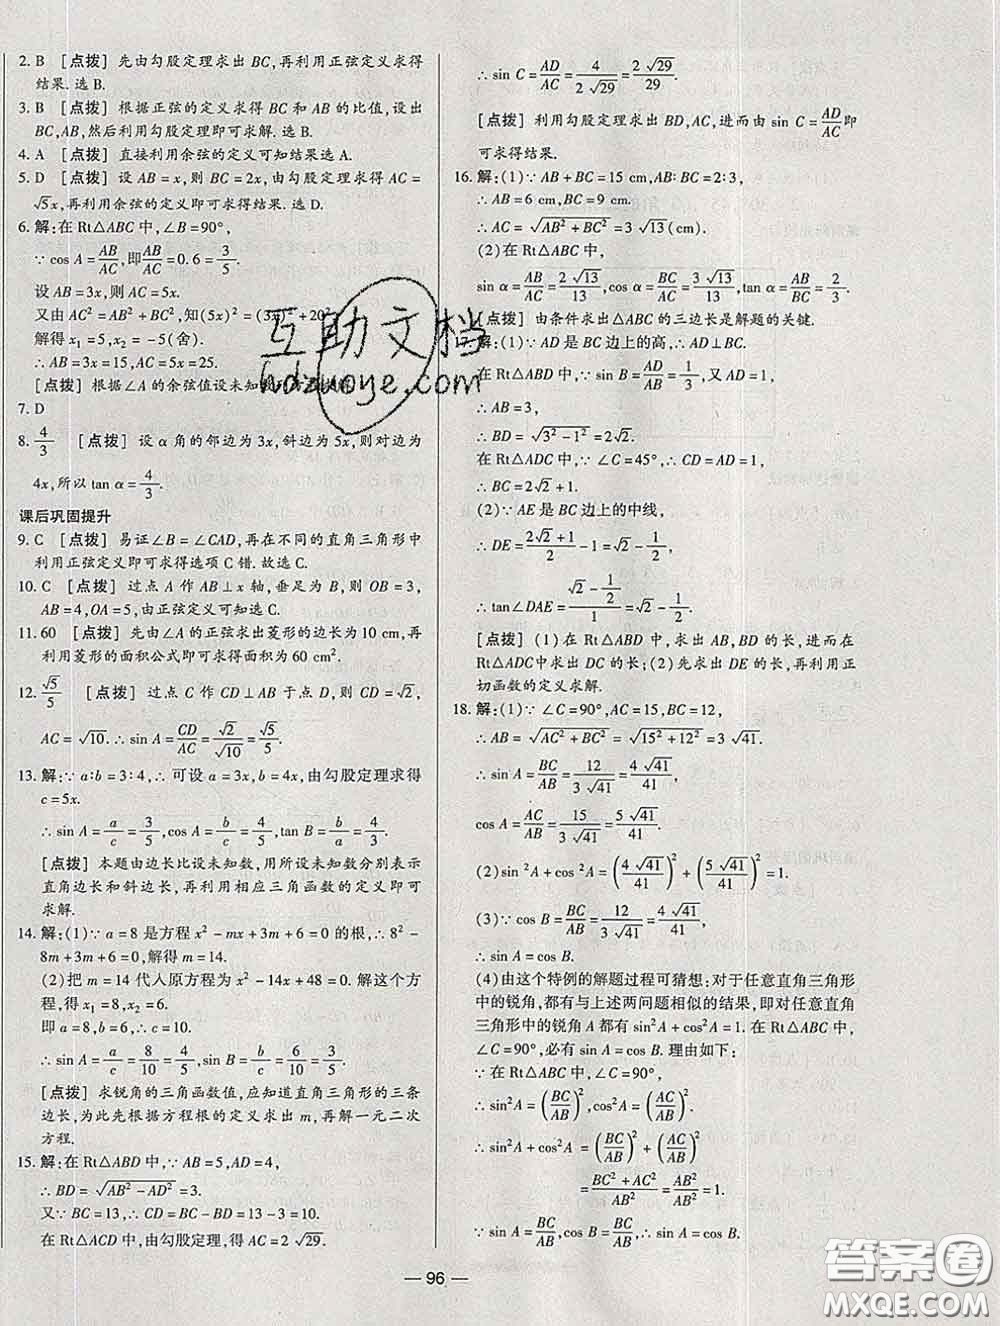 2. B [点拨] 先由勾股定理求出 BC,再利用正弦定义求得
结果. 选 B.
3. B [点拨] 根据正弦的定义求得 BC 和 AB 的比值,设出
BC,AB,然后利用勾股定理即可求解. 选 B.
4. A [点拨] 直接利用余弦的定义可知结果选 A.
5. D [点拨] 设 AB=x,则 BC=2x,由勾股定理求得 AC=
√5x,再利用余弦的定义即可求得结果. 选 D.
6. 解:在 Rt△ABC 中,∠B=90°,
∵cos A=AB/AC,即AB/AC=0.6=3/5.
设 AB=3x,则 AC=5x.
又由 AC²=AB²+BC²,知(5x)²=(3x)²+20²
解得 x₁=5,x₂=-5(舍).
∴AB=3x=15,AC=5x=25.
[点拨] 根据∠A 的余弦值设未知
7. D
8. 4/3 [点拨] 设 α 角的邻边为 3x,斜边为 5x,则对边为
4x,所以 tan α=4/3.
课后巩固提升
9. C [点拨] 易证∠B=∠CAD,再在不同的直角三角形中
利用正弦定义即可求得选项 C 错. 故选 C.
10. C [点拨] 过点 A 作 AB⊥x 轴,垂足为 B,则 OB=3,
AB=4,OA=5,由正弦定义可知选 C.
11. 60 [点拨] 先由∠A 的正弦求出菱形的边长为 10 cm,再
利用菱形的面积公式即可求得面积为 60 cm².
12. √5/5 [点拨] 过点 C 作 CD⊥AB 于点 D,则 CD=√2,
AC=√10. ∴sin A=CD/AC=√2/√10=√5/5.
13. 解:∵a∶b=3∶4,∴可设 a=3x,b=4x,由勾股定理求得
c=5x.
∴sin A=a/c=3/5,cos A=b/c=4/5,tan B=b/a=4/3.
[点拨] 本题由边长比设未知数,用所设未知数分别表示
直角边长和斜边长,再利用相应三角函数的定义即可
求解.
14. 解:(1)∵a=8 是方程 x²-mx+3m+6=0 的根,∴8²-
8m+3m+6=0,解得 m=14.
(2)把 m=14 代入原方程为 x²-14x+48=0. 解这个方
程,得 x₁=8,x₂=6.
即 a=8,b=6,∴c=10.
∴sin A=a/c=8/10=4/5,sin B=b/c=6/10=3/5.
[点拨] 求锐角的三角函数值,应知道直角三角形的三条
边长,为此先根据方程根的定义求出 m,再解一元二次
方程.
15. 解:在 Rt△ABD 中,∵AB=5,AD=4,
∴BD=√(AB²-AD²)=3.
又∵BC=13,∴CD=BC-BD=13-3=10.
在 Rt△ACD 中,由勾股定理,得 AC=2√29.
∴sin C=AD/AC=4/(2√29)=2√29/29.
[点拨] 利用勾股定理求出 BD,AC,进而由 sin C=AD/AC即
可求得结果.
16. 解:(1)∵AB+BC=15 cm,AB∶BC=2∶3,
∴AB=6 cm,BC=9 cm.
∴AC=√(AB²+BC²)=3√13(cm).
(2)在 Rt△ABC 中,
sin α=AB/AC=2√13/13,cos α=BC/AC=3√13/13,tan α=AB/BC=2/3.
[点拨] 由条件求出△ABC 的三边长是解题的关键.
解:(1)∵AD 是 BC 边上的高,∴AD⊥BC.
在 Rt△ABD 中,∵sin B=AD/AB=1/3,又 AD=1,
∴AB=3.
∴BD=√(3²-1²)=2√2.
在 Rt△ADC 中,∵∠C=45°,∴CD=AD=1,
∴BC=2√2+1.
(2)∵AE 是 BC 边上的中线,
∴DE=(2√2+1)/2-1=√2-1/2,
∴tan∠DAE=(√2-1/2)/1=√2-1/2.
[点拨] (1)在 Rt△ABD 中,求出 AB,BD 的长,进而在
Rt△ADC中求出 DC 的长;(2)先求出 DE 的长,再利用正
切函数的定义求解.
18. 解:(1)∵∠C=90°,AC=15,BC=12,
∴AB=√(AC²+BC²)=√(15²+12²)=3√41.
∴sin A=BC/AB=12/(3√41)=4√41/41,
cos A=AC/AB=15/(3√41)=5√41/41.
(2)sin²A+cos²A=(4√41/41)²+(5√41/41)²=1.
(3)∵cos B=BC/AB=12/(3√41)=4√41/41,
∴sin A=cos B.
(4)由这个特例的解题过程可猜想:对于任意直角三角形
中的锐角,都有与上述两问题相似的结果,即对任意直角
三角形中的锐角 A 都有 sin²A+cos²A=1. 在 Rt△ABC 中,
∠C=90°,必有 sin A=cos B. 理由如下:
∵在 Rt△ABC 中,∠C=90°,
∴sin²A=(BC/AB)²,cos²A=(AC/AB)².
∴sin²A+cos²A=(BC/AB)²+(AC/AB)²
=(BC²+AC²)/AB²=AB²/AB²=1.
∵sin A=BC/AB,cos B=BC/AB,∴sin A=cos B.
— 96 —
互助文档
hdzuoye.com
答案圈
MXQE.COM